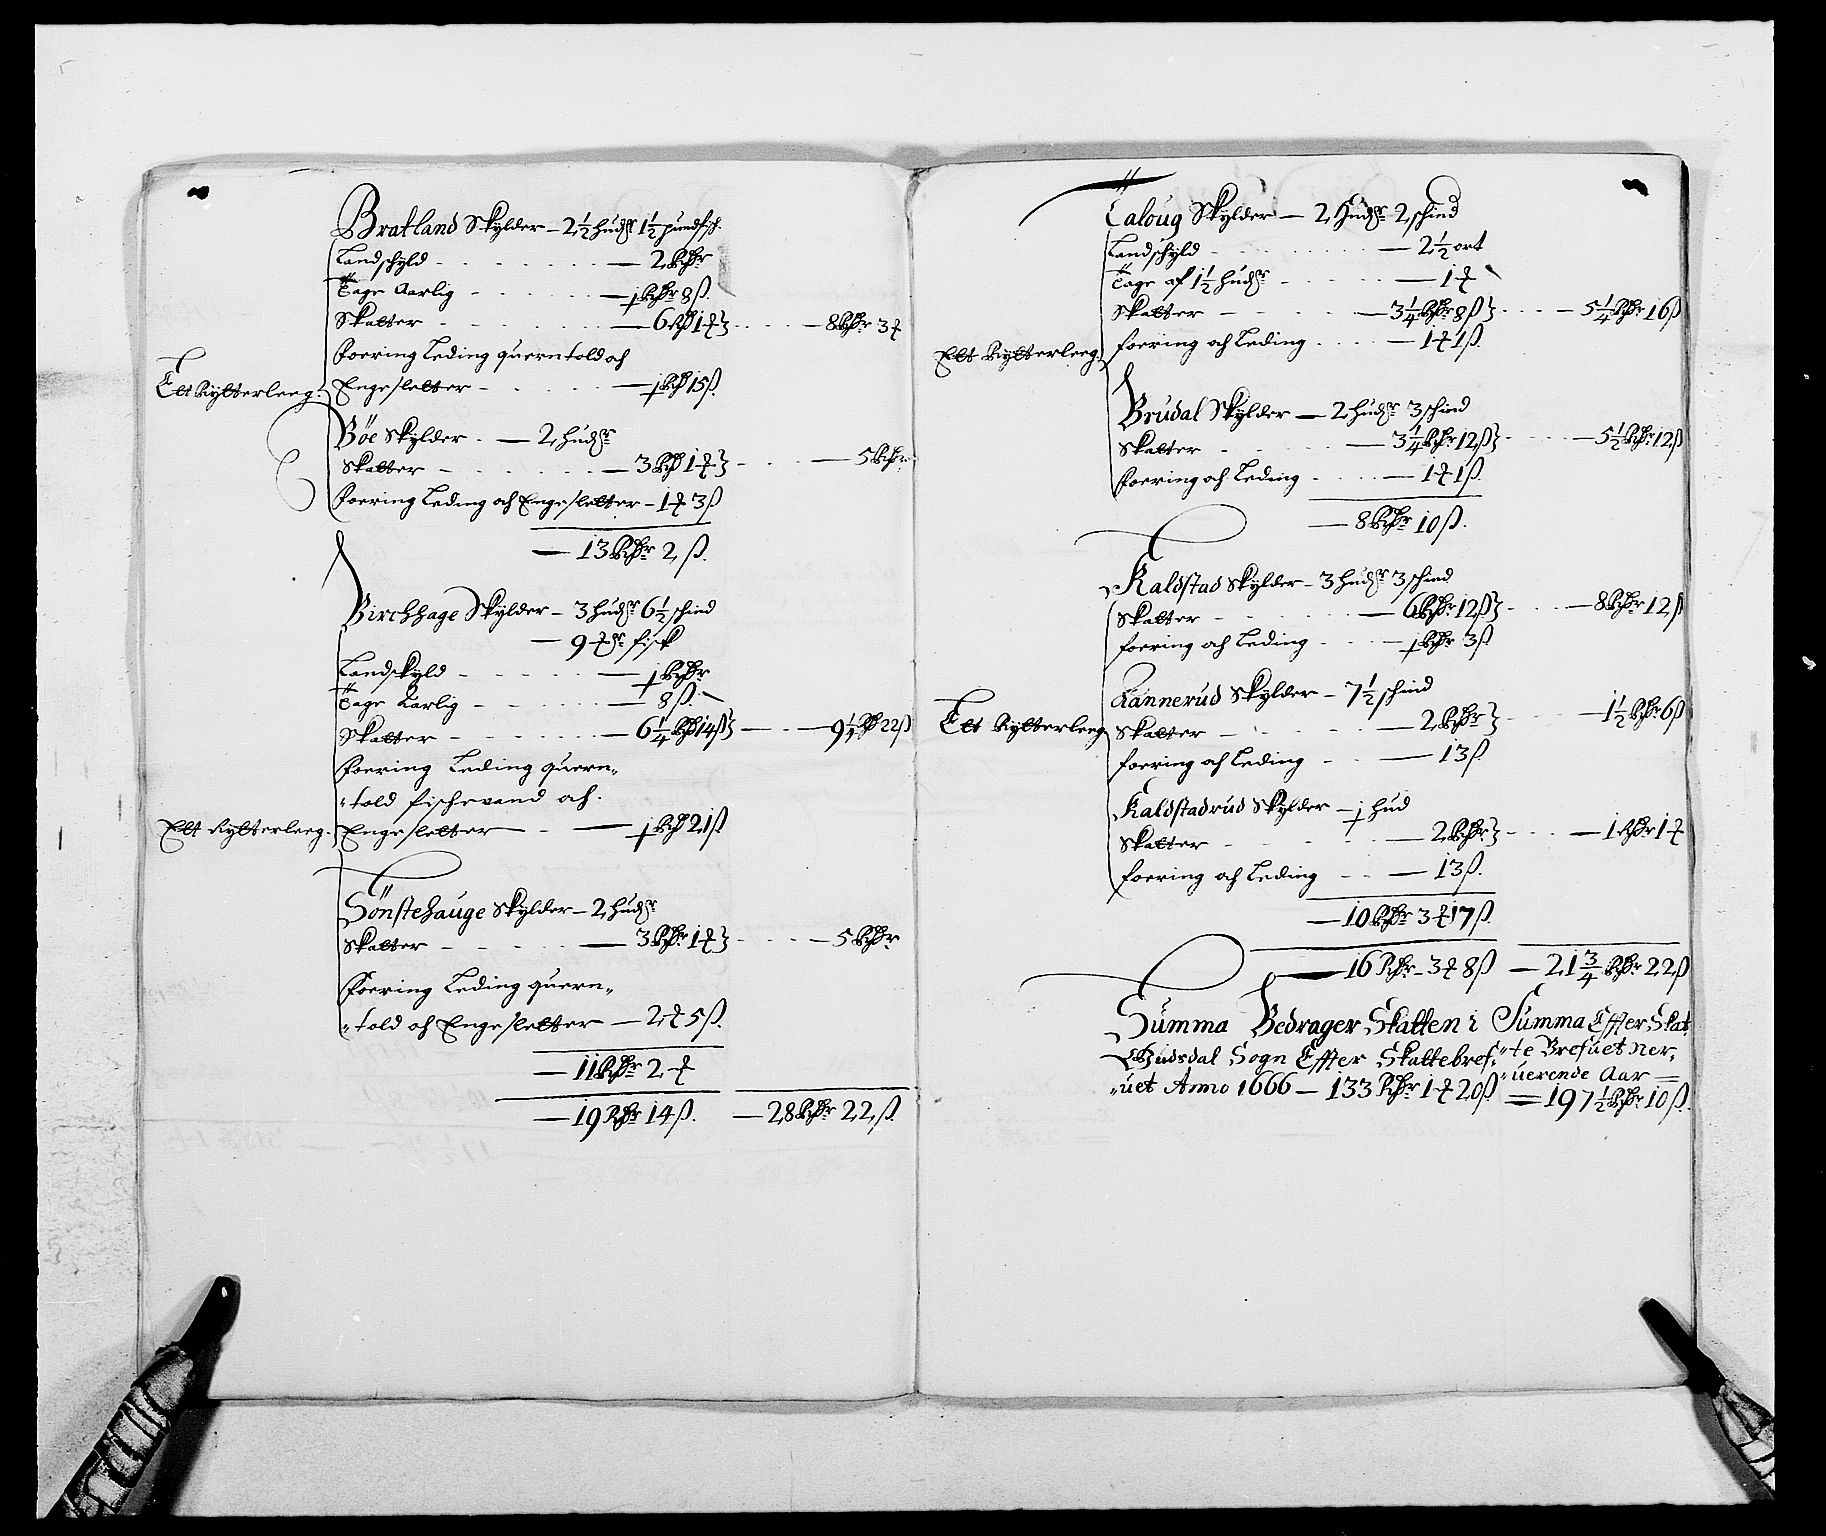 Bratland Skylder – 2 1/2 hudr 1 1/2 pund fisk.
Landschyld – 2 Rdr
Tage Aarlig – 1 Rdr 8 ß.
Skatter – 6 Rd 1 ₰} – 8 Rdr 3 ₰
Foering Leding querntold och
Ett Rytterleeg. Engesletter – 1 Rd 15 ß
Böe Skylder – 2 hudr
Skatter – 3 Rd 1 ₰} – 5 Rdr
Foering Leding och Engesletter – 1 ₰ 3 ß
– 13 Rdr 2 ß.
Birchhage Skylder – 3 hudr 6 1/2 schind
– 9 ₰r fisk
Landskyld – 1 Rdr
Tage Aarlig – 8 ß.
Skatter – 6 1/4 Rd 14 ß} – 9 1/4 Rd 22 ß
Foering Leding quern„
„told fischevand och.
Ett Rytterleeg. Engesletter – 1 Rd 21 ß
Sönstehauge Skylder – 2 hudr
Skatter – 3 Rdr 1 ₰} – 5 Rdr
Foering Leding quern„
„told och Engesletter – 2 ₰ 5 ß.
– 11 Rdr 2 ₰
– 19 Rdr 14 ß. – 28 Rdr 22 ß.
Taloug Skylder – 2 Hudr 2 schind
Landschyld – 2 1/2 ort
Tage af 1 1/2 hudr – 1 ₰
Skatter – 3 1/4 Rdr 8 ß} – 5 1/4 Rdr 16 ß
Ett Rytterleeg. foering och Leding – 1 ₰ 1 ß.
Brudal Skylder – 2 hudr 3 schind
Skatter – 3 1/4 Rdr 12 ß} – 5 1/2 Rdr 12 ß
foering och Leding – 1 ₰ 1 ß.
– 8 Rdr 10 ß.
Kaldstad Skylder – 3 hudr 3 schind
Skatter – 6 Rdr 12 ß} – 8 Rdr 12 ß
foering och Leding – 1 Rdr 3 ß
Rannerud Skylder – 7 1/2 schind
Ett Rytterleeg Skatter – 2 Rdr} – 1 1/2 Rdr 6 ß
foering och Leding – 13 ß
Kaldstadrud Skylder – 1 hud
Skatter – 2 Rdr} – 1 Rdr 1 ₰
foering och Leding – 13 ß.
– 10 Rdr 3 ₰ 17 ß.
– 16 Rdr – 3 ₰ 8 ß – 21 3/4 Rdr 22 ß
Summa Bedrager Skatten i
Gudsdal Sogn Effter Skattebref„
„uet Anno 1666 – 133 Rdr 1 ₰ 20 ß
Summa Effter Skat
„te Brefuet Ner„
„uerende Aar =
= 197 1/2 Rdr 10 ß.